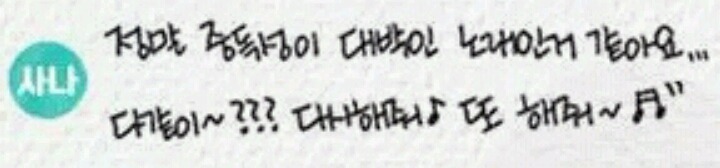 사나
정말 중독성이 대박인 노래인거 같아요...
다같이~??? 다시해줘♪ 또 해줘~♬"